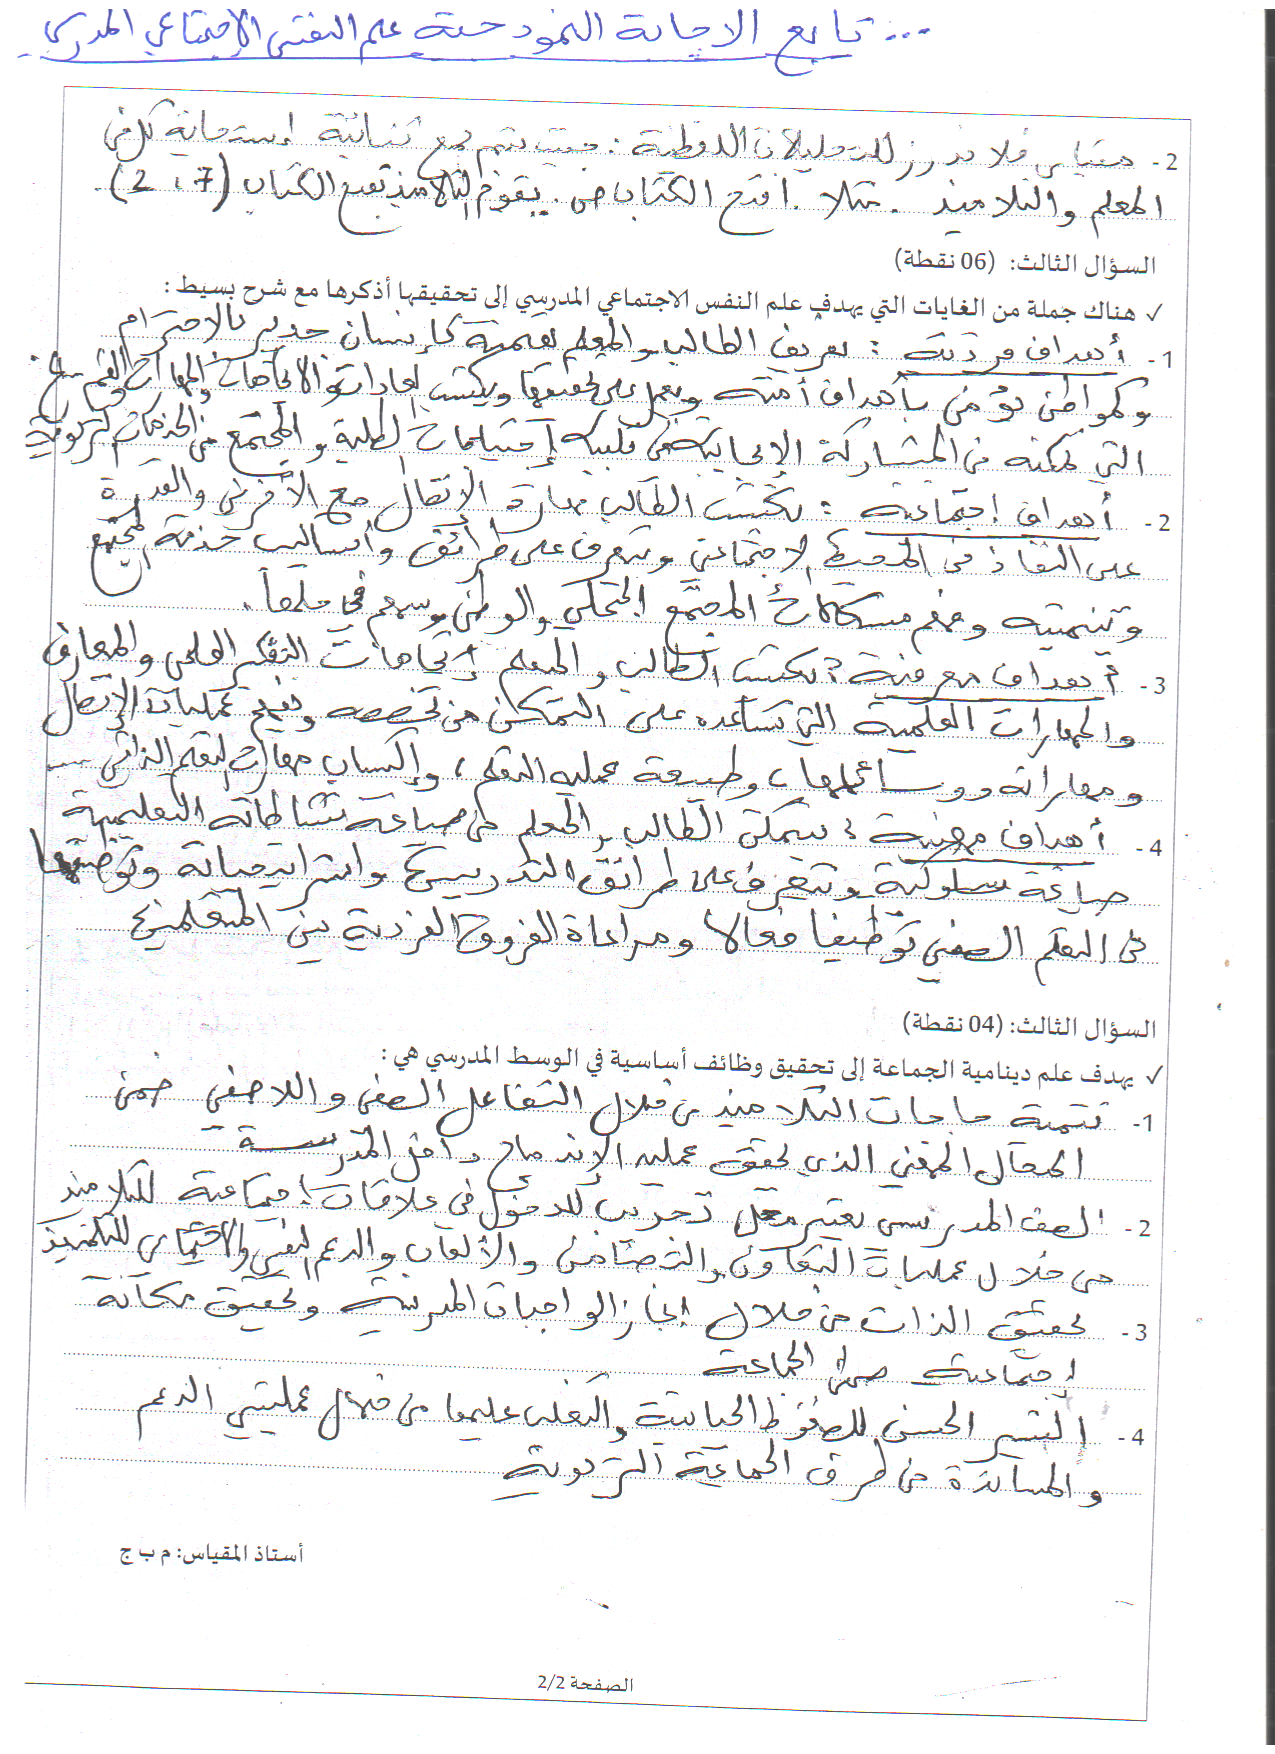 ... تابع الاجابة النموذجية علم النفس الاجتماعي المدرسي
2- مقياس فلاندرز للتحليلات اللفظية : حيث يتم جمع ثنائية إستجابة كل من
المعلم والتلاميذ . مثلا . افتح الكتاب ص. يقوم التلاميذ بفتح الكتاب (7 ، 2).
السؤال الثالث: (06 نقطة)
✓ هناك جملة من الغايات التي يهدف علم النفس الاجتماعي المدرسي إلى تحقيقها أذكرها مع شرح بسيط :
1- أهداف فردية : تعريف الطالب والمعلم بقيمته كإنسان جدير بالاحترام
وكمواطن يؤمن بأهداف أمته ويعمل على تحقيقها ويكتسب العادات والاتجاهات والمهارات والقيم
التي تمكنه من المشاركة الإيجابية في تلبية إحتياجات الطلبة والمجتمع من الخدمات التربوية
2- أهداف إجتماعية : يكتسب الطالب مهارة الإتصال مع الآخرين والقدرة
على النفاذ في المحيط الاجتماعي ويتعرف على طرائق وأساليب خدمة المجتمع
وتنميته وفهم مشكلات المجتمع المحلي والوطني ويسهم في حلها.
3- أهداف معرفية : يكتسب الطالب والمعلم إتجاهات التفكير العلمي والمعارف
والمهارات العلمية التي تساعده على التمكن من تخصصه وفهم عمليات الإتصال
ومهاراته ووسائلها، وطبيعة عملية التعلم، وإكتساب مهارات التعلم الذاتي ...
4- أهداف مهنية : يتمكن الطالب والمعلم من صياغة نشاطاته التعليمية
صياغة سلوكية ويتعرف على طرائق التدريس واستراتيجياته وتوظيفها
في التعلم الصفي توظيفا فعالا ومراعاة الفروق الفردية بين المتعلمين
السؤال الثالث: (04 نقطة)
✓ يهدف علم دينامية الجماعة إلى تحقيق وظائف أساسية في الوسط المدرسي هي:
1- تنمية حاجات التلاميذ من خلال التفاعل الصفي واللاصفي ضمن
المجال المهني الذي يحقق عملية الإندماج داخل المدرسة
2- الصف المدرسي يعتبر محل تدريب للدخول في علاقات إجتماعية للتلاميذ
من خلال عمليات التعاون والتضامن والألعاب والدعم النفسي والاجتماعي للتلميذ
3- تحقيق الذات من خلال إنجاز الواجبات المدرسية وتحقيق مكانة
إجتماعية ضمن الجماعة
4- التسيير الحسن للضغوط الحياتية والتغلب عليها من خلال عمليتي الدعم
والمساندة من طرف الجماعة التربوية
أستاذ المقياس: م ب ج
الصفحة 2/2